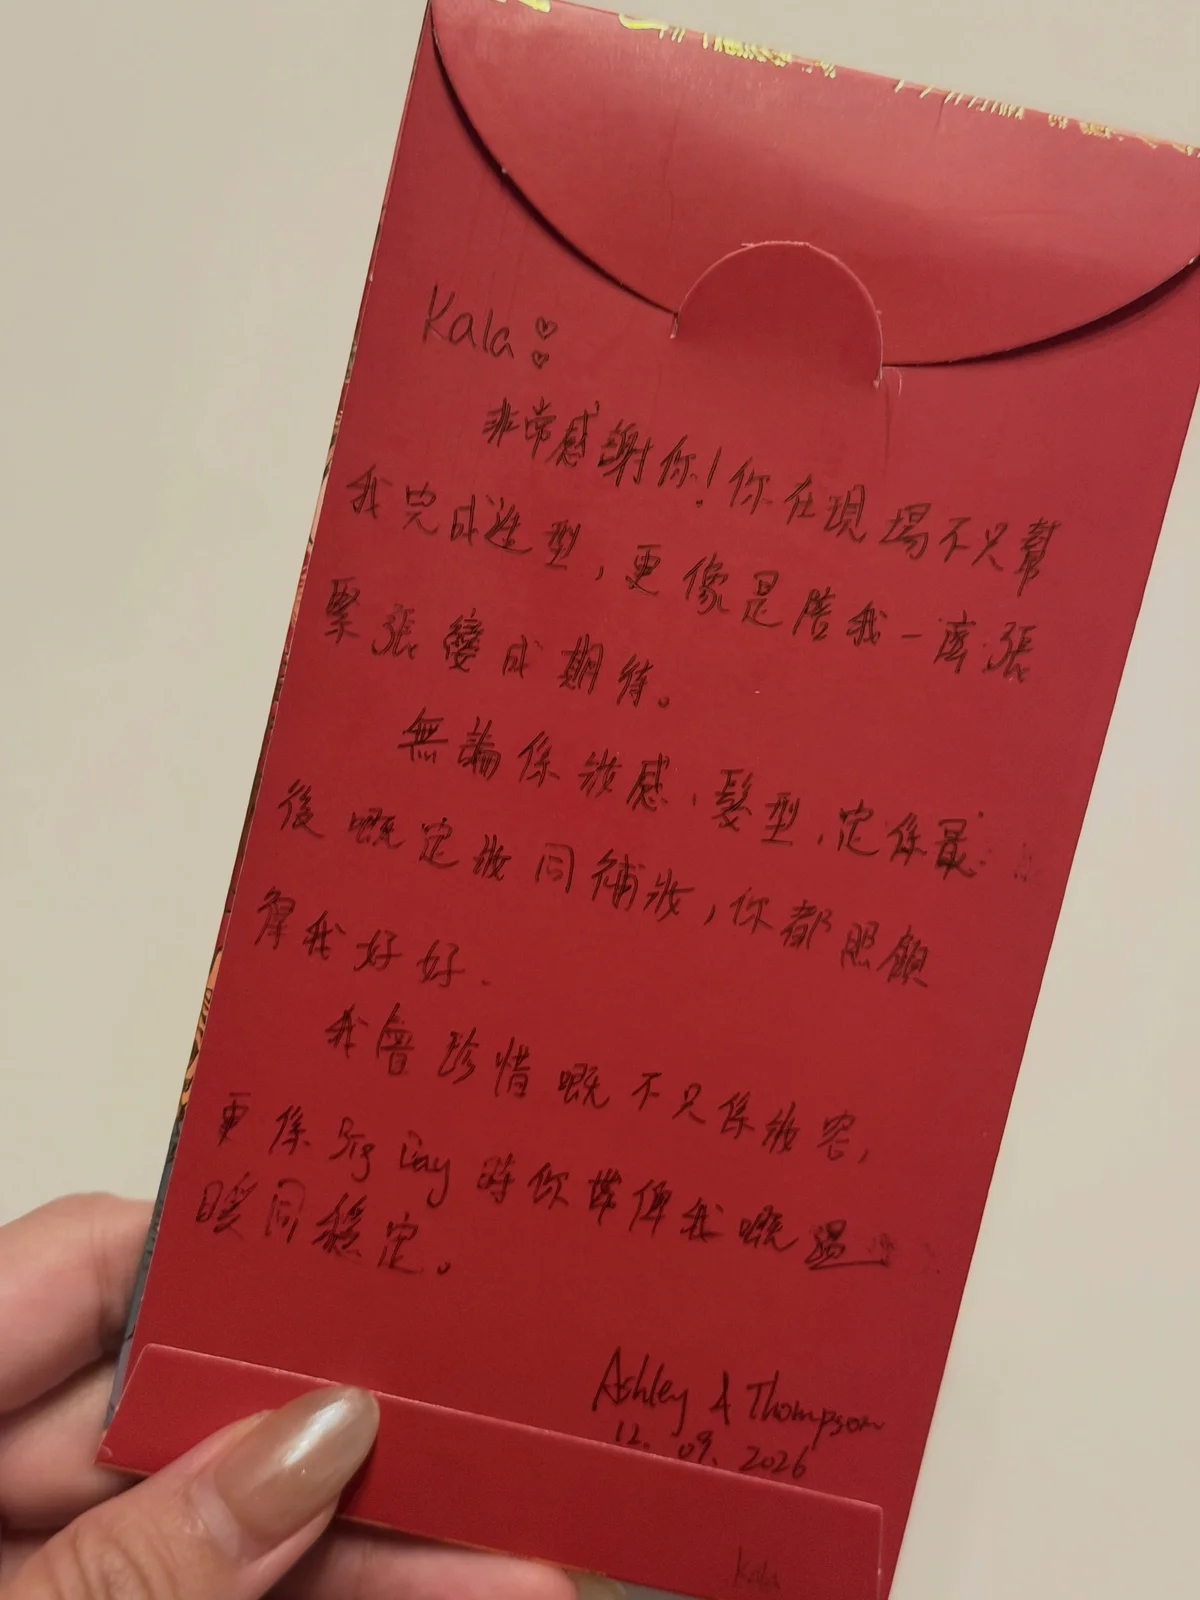 Kala
非常感謝你！你在現場不只幫
我完成造型，更像是陪我一齊張
緊張變成期待。
無論係妝感，髮型，定係最
後嘅定妝同補妝，你都照顧
得我好好.
我會珍惜嘅不只係妝容，
更係 Big Day 時你帶俾我嘅溫
暖同穩定。
Ashley & Thompson
12. 09. 2026
Kala